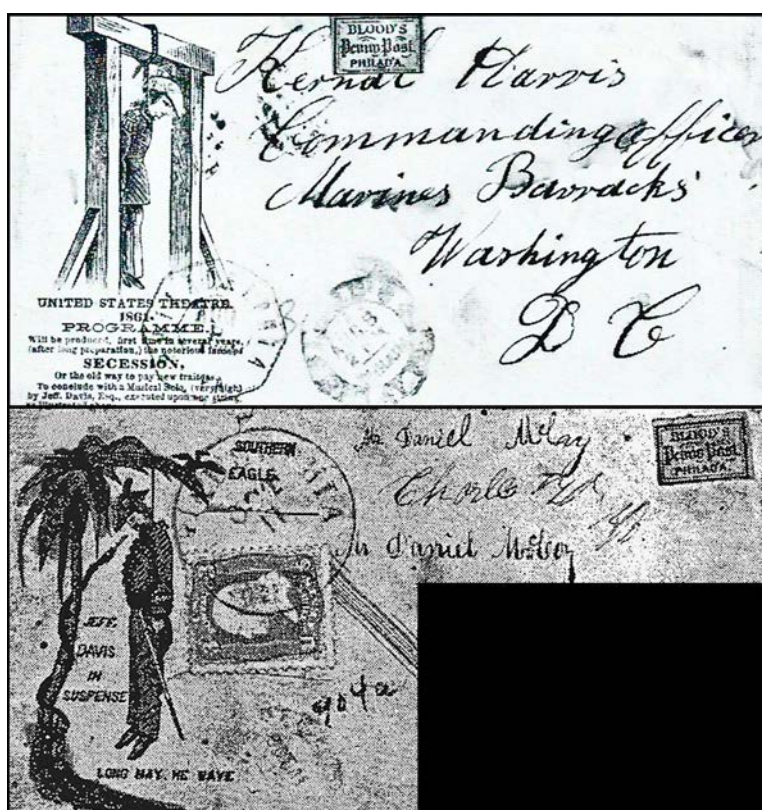 BLOOD'S
Penny Post
PHILAD'A.
Kernal Harris
Commanding officer
Marines Barracks
Washington
D C
UNITED STATES THEATRE.
1861.
PROGRAMME.
Will be produced, first time in several years,
(after long preparation,) the notorious farce of
SECESSION,
Or the old way to pay new traitors.
To conclude with a Musical Solo, (very high)
by Jeff. Davis, Esq., executed upon one string,
SOUTHERN
EAGLE.
Daniel McCay
BLOOD'S
Penny Post
PHILAD'A.
Daniel McCoy
JEFF.
DAVIS
IN
SUSPENSE
LONG MAY HE WAVE